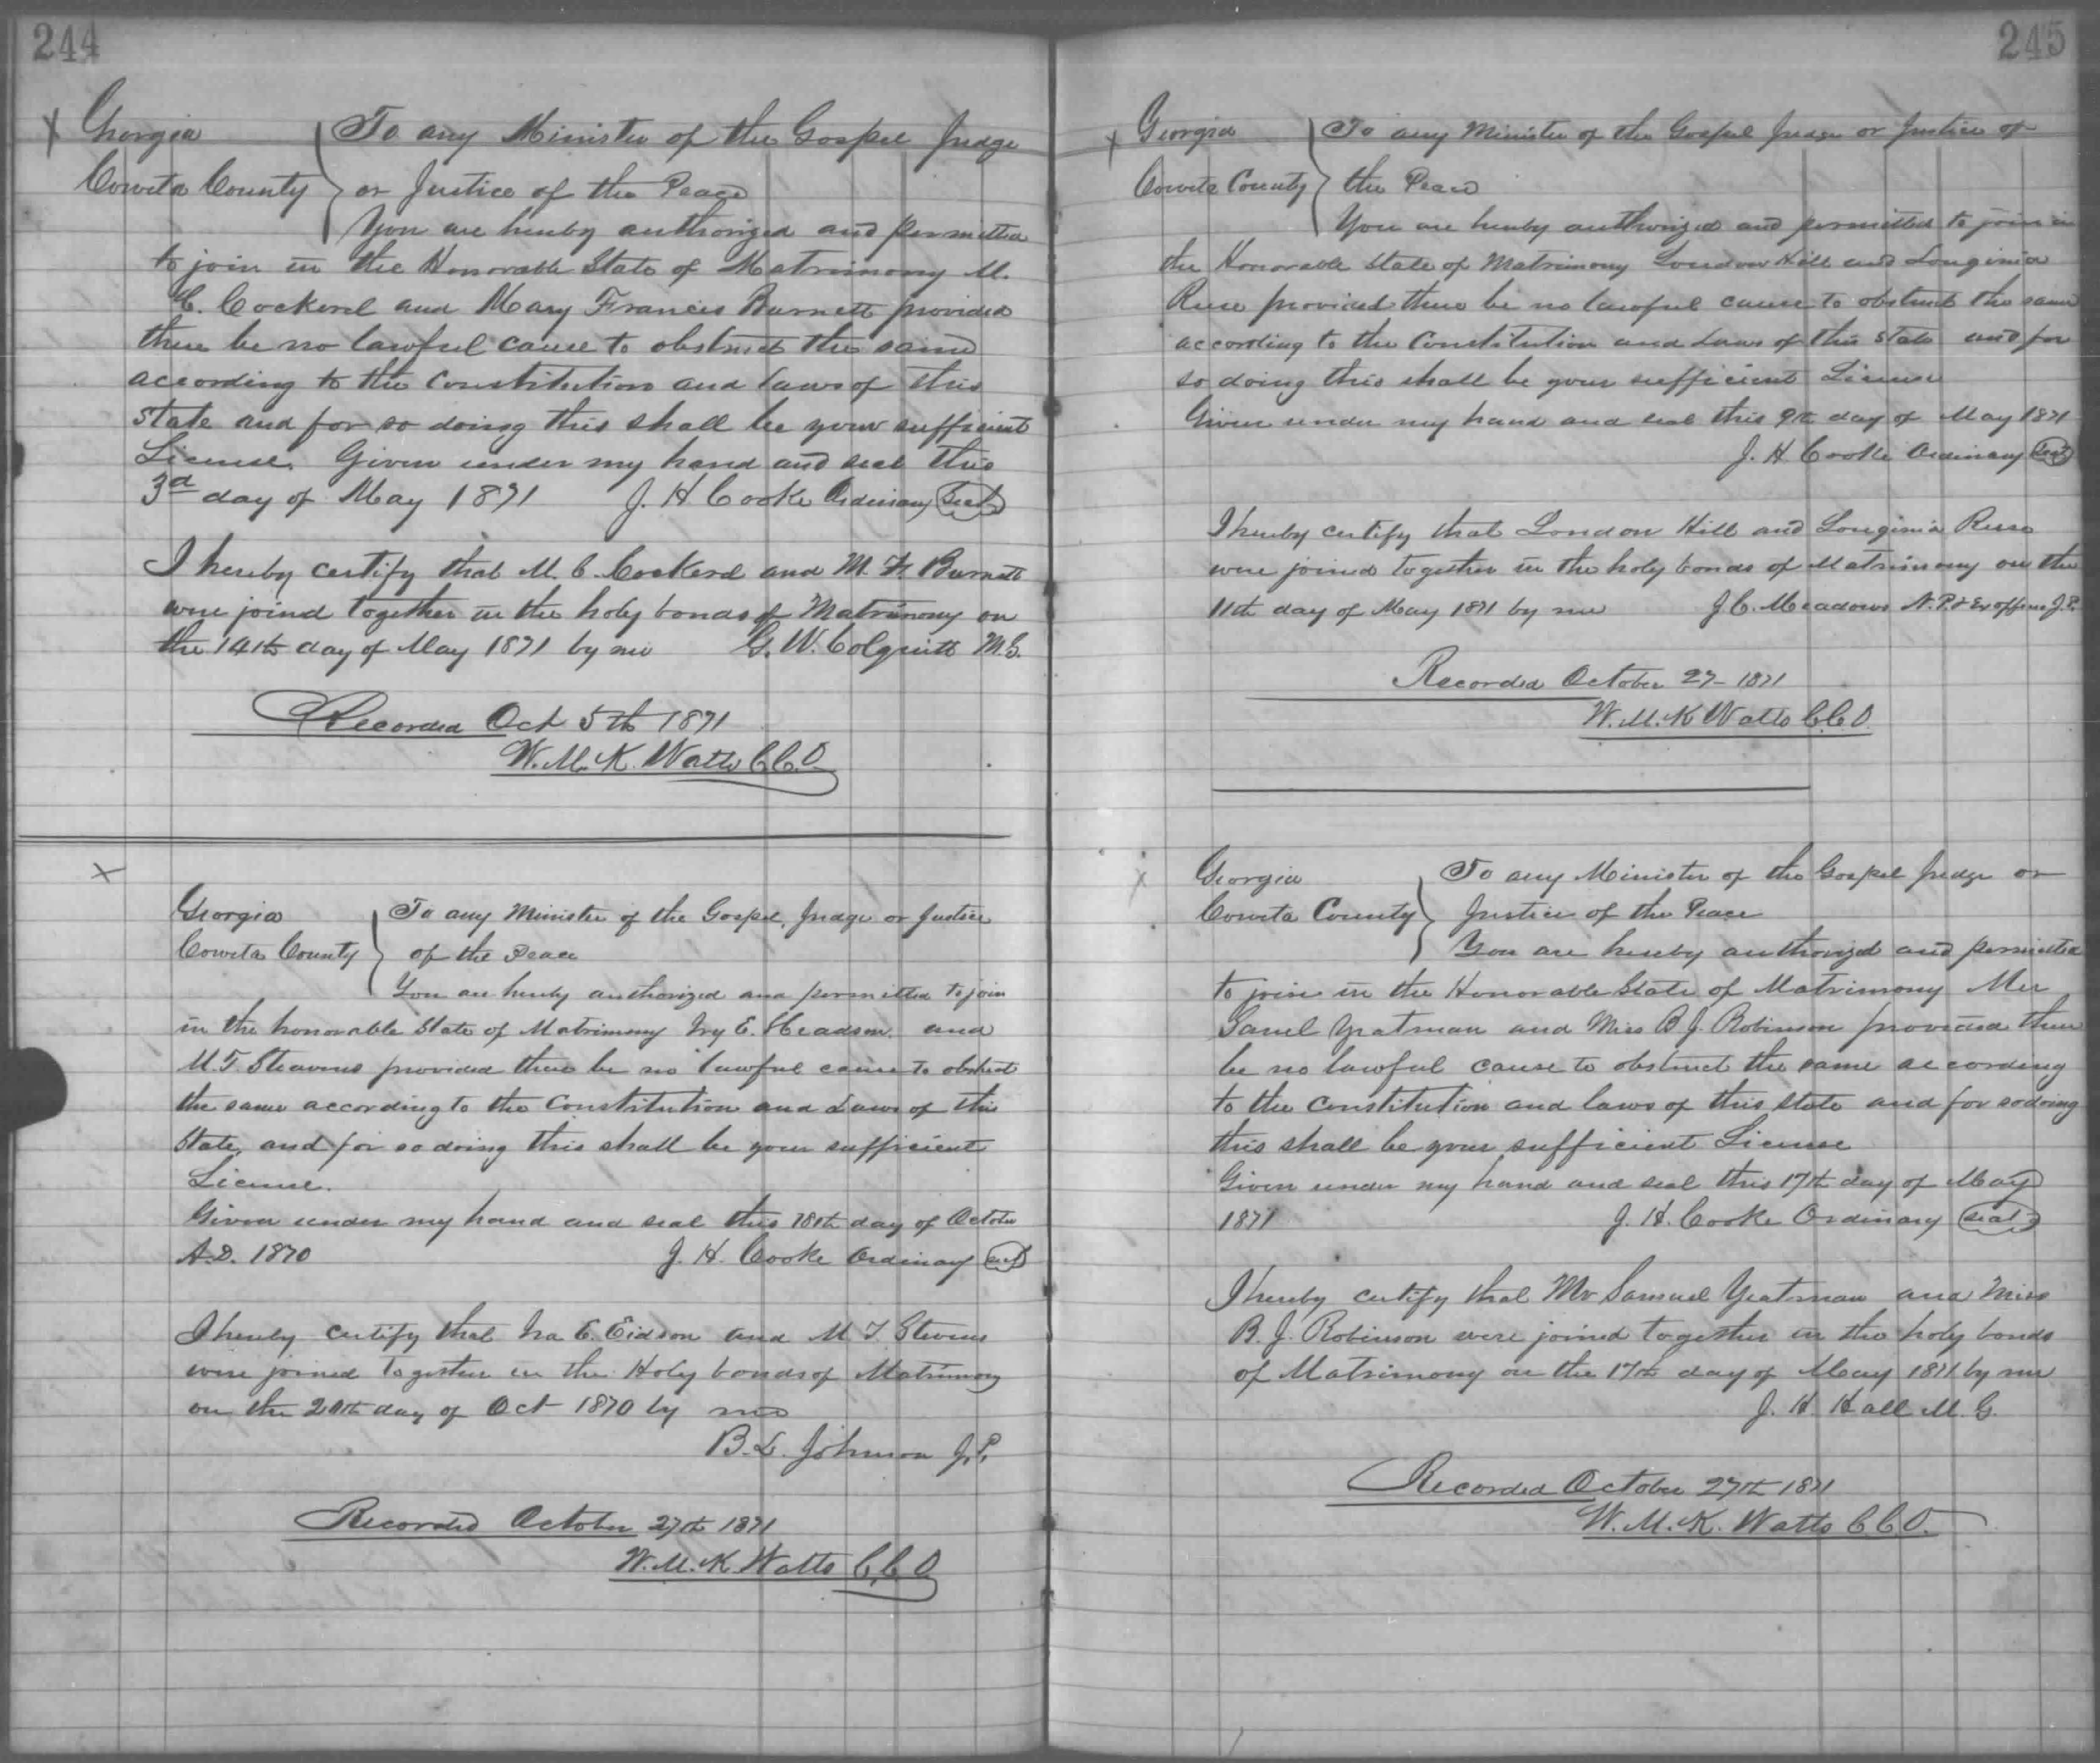 244
Georgia To any Minister of the Gospel Judge
Coweta County or Justice of the Peace
You are hereby authorized and permitted
to join in the Honorable State of Matrimony M.
C. Cockerel and Mary Francis Burnett provided
there be no lawful cause to obstruct the same
according to the Constitution and Laws of this
State and for so doing this shall be your sufficient
License. Given under my hand and seal this
3rd day of May 1871 J. H Cooke Ordinary Seal
I hereby certify that M. C. Cockerel and M. F. Burnett
were joind together in the holy bonds of Matrimony on
the 14th day of May 1871 by me G. W. Colquitt M.G.
Recorded Oct 5th 1871
W. M. K. Watts C.C.O.
X
Georgia To any Minister of the Gospel, Judge or Justice
Coweta County of the Peace
You are hereby authorized and permitted to join
in the honorable State of Matrimony Iry E. Headson and
M. T. Steavens provided there be no lawful cause to obstruct
the same according to the Constitution and Laws of this
State, and for so doing this shall be your sufficient
License.
Given under my hand and seal this 18th day of October
A.D. 1870 J. H. Cooke Ordinary Seal
I hereby certify that Ira E. Eidson and M T Stevens
were joined together in the Holy bonds of Matrimony
on the 20th day of Oct 1870 by me
B. L. Johnson J.P.
Recorded October 27th 1871
W. M. K Watts C.C.O
245
Georgia To any Minister of the Gospel Judge or Justice of
Coweta County the Peace
You are hereby authorized and permitted to join in
the Honorable State of Matrimony London Hill and Louginia
Reese provided there be no lawful cause to obstruct the same
according to the Constitution and Laws of this State and for
so doing this shall be your sufficient License
Given under my hand and seal this 9th day of May 1871
J. H Cooke Ordinary Seal
I hereby certify that London Hill and Louginia Reese
were joined together in the holy bonds of Matrimony on the
11th day of May 1871 by me J. C. Meadows N.P. & Ex officio J.P.
Recorded October 27- 1871
W. M. K Watts C.C.O.
Georgia To any Minister of the Gospel Judge or
Coweta County Justice of the Peace
You are hereby authorized and permitted
to join in the Honorable State of Matrimony Mr
Samel Yeatman and Miss B J. Robinson provided there
be no lawful cause to obstruct the same according
to the Constitution and laws of this State and for so doing
this shall be your sufficient License
Given under my hand and seal this 17th day of May
1871 J. H. Cooke Ordinary Seal
I hereby certify that Mr Samuel Yeatman and Miss
B. J. Robinson were joined together in the holy bonds
of Matrimony on the 17th day of May 1871 by me
J. H. Hall M. G.
Recorded October 27th 1871
W. M. K. Watts C C O.